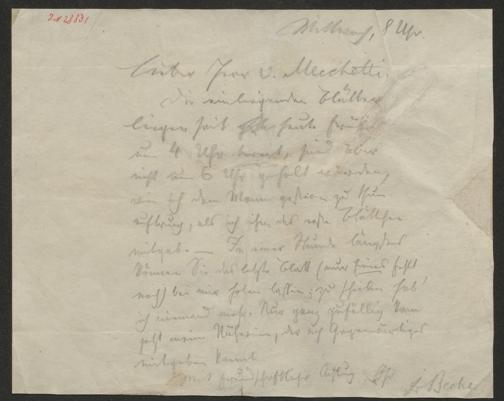 Mittwoch, 8 Uhr.
Lieber Herr v. Mecchetti,
Die einliegenden Blätter
liegen seit heute früh
um 4 Uhr bereit, sind aber
nicht um 6 Uhr geholt worden,
wie ich dem Mann gestern zu thun
auftrug, als ich ihm das erste Blättchen
mitgab. — In einer Stunde längstens
können Sie das letzte Blatt (nur Eines fehlt
noch) bei mir holen lassen; zu schicken hab'
ich niemand mehr. Nur ganz zufällig kam
jetzt meine Näherin, der ich Gegenwärtiges
mitgeben konnte
Mit freundschaftlicher Achtung Ihr
J. Becher